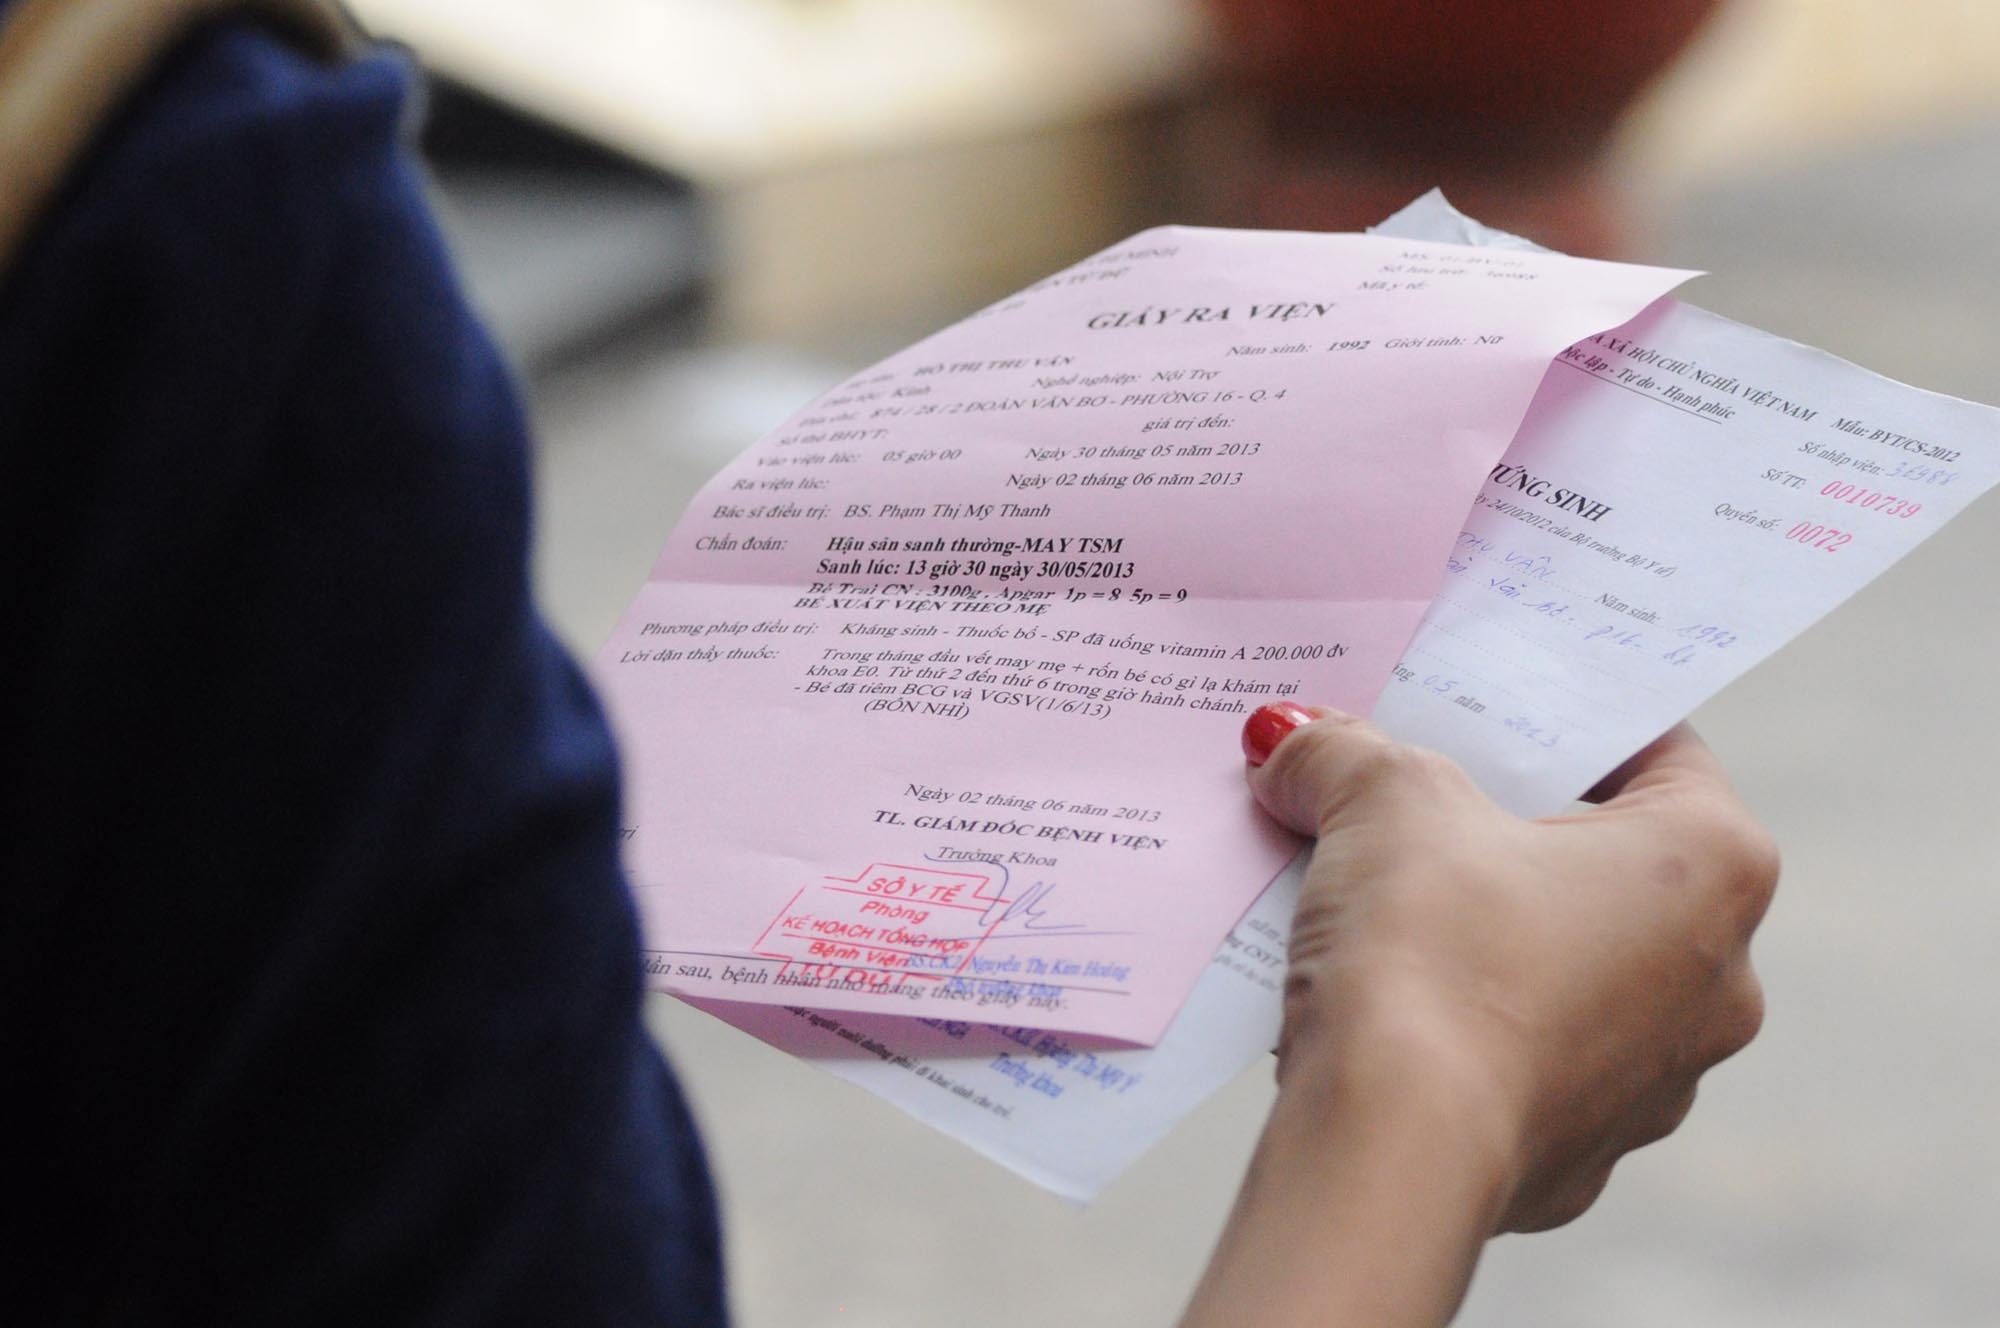 GIẤY RA VIỆN
HỒ THỊ THU VÂN Năm sinh: 1992 Giới tính: Nữ
Kinh Nghề nghiệp: Nội Trợ
874 / 28 / 2 ĐOÀN VĂN BƠ - PHƯỜNG 16 - Q. 4
Số thẻ BHYT: giá trị đến:
Vào viện lúc: 05 giờ 00 Ngày 30 tháng 05 năm 2013
Ra viện lúc: Ngày 02 tháng 06 năm 2013
Bác sĩ điều trị: BS. Phạm Thị Mỹ Thanh
Chẩn đoán: Hậu sản sanh thường-MAY TSM
Sanh lúc: 13 giờ 30 ngày 30/05/2013
Bé Trai CN : 3100g , Apgar 1p = 8 5p = 9
BÉ XUẤT VIỆN THEO MẸ
Phương pháp điều trị: Kháng sinh - Thuốc bổ - SP đã uống vitamin A 200.000 đv
Lời dặn thầy thuốc: Trong tháng đầu vết may mẹ + rốn bé có gì lạ khám tại
khoa E0. Từ thứ 2 đến thứ 6 trong giờ hành chánh.
- Bé đã tiêm BCG và VGSV(1/6/13)
(BÓN NHÌ)
Ngày 02 tháng 06 năm 2013
TL. GIÁM ĐỐC BỆNH VIỆN
Trưởng Khoa
SỞ Y TẾ
Phòng
KẾ HOẠCH TỔNG HỢP
Bệnh Viện
TỪ DŨ
BS.CK2. Nguyễn Thị Kim Hoàng
Phó trưởng khoa
lần sau, bệnh nhân nhớ mang theo giấy này.
XÃ HỘI CHỦ NGHĨA VIỆT NAM Mẫu: BYT/CS-2012
Độc lập - Tự do - Hạnh phúc
Số nhập viện:
Số TT: 0010739
Quyển số: 0072
ỨNG SINH
24/10/2012 của Bộ trưởng Bộ Y tế)
THU VÂN Năm sinh: 1992
P16
05 năm 2013
Hoàng Thị Mỹ Ý
Trưởng khoa
người nuôi dưỡng phải đi khai sinh cho trẻ.